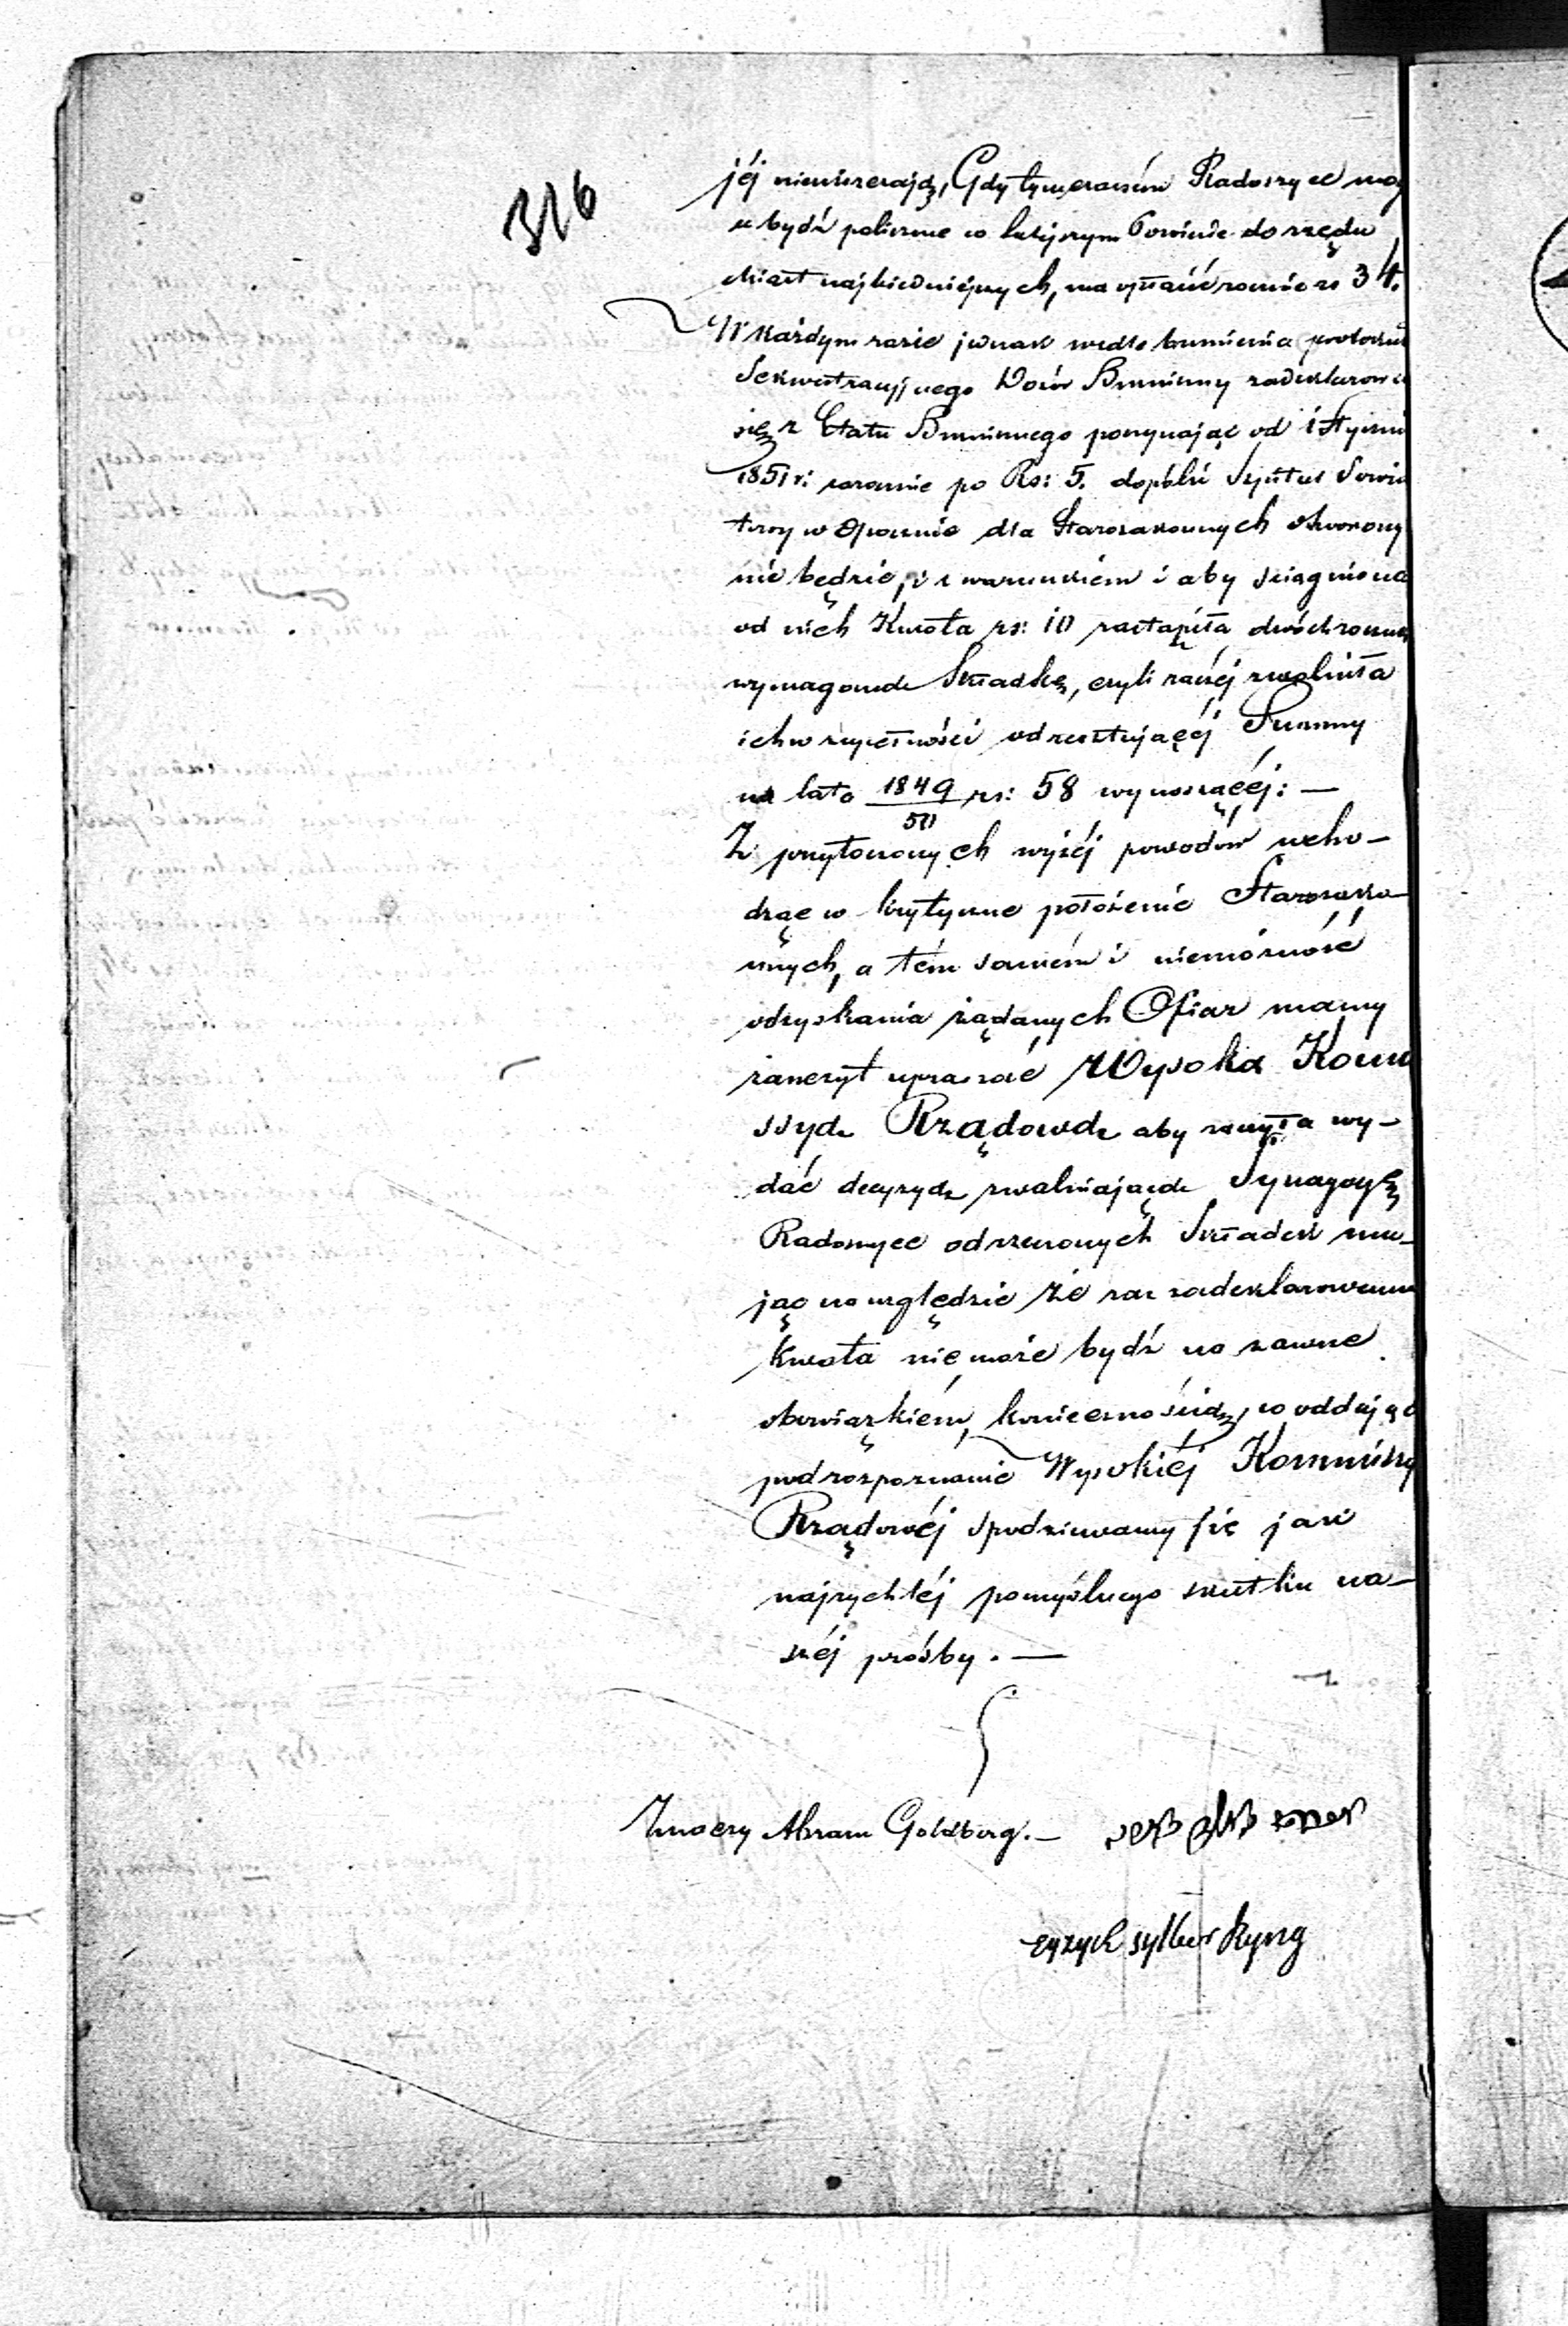 316
jéj nieuiszczają, Gdy tymczasem Radoszyce mogą
być policzone w tutejszym Powiecie do rzędu
Miast najbiedniejszych, ma opłacić rocznie rs 34.
W każdym razie jednak wedle brzmienia protokułu
Sekwestracyjnego Dozór Bożniczny zadeklarował
się z Etatu Bożnicznego poczynając od 1 Stycznia
1851 r: corocznie po Rs: 5. dopóki Szpital Powia
towy w Opocznie dla Starozakonnych otworzony
nie będzie, i z warunkiem i aby ściągniona
od nich Kwota rs: 10 zastąpiła dwóchroczną
wymaganą Składkę, czyli raczéj zwolniła
ich w zupełności od resztującéj Summy
na lata 1849/50 rs: 58 wynoszącéj: —
Z przytoczonych wyżéj powodów wcho-
dząc w krytyczne położenie Starozako-
nnych, a tém samém i niemożność
odzyskania żądanych Ofiar mamy
zaszczyt upraszać Wysoką Kommi
ssyą Rządową aby raczyła wy-
dać decyzyą zwalniającą Synagogę
Radoszyce od rzeczonych Składek ma-
jąc na względzie że raz zadeklarowana
kwota nie może bydź na zawsze
obowiązkiém, koniecznością, co oddając
pod rozpoznanie Wysokiéj Kommissyi
Rządowéj spodziewamy się jak
najrychléj pomyślnego skutku na-
széj prośby. —
Znaczy Abram Goldberg. —
zyzych sylber Ryng